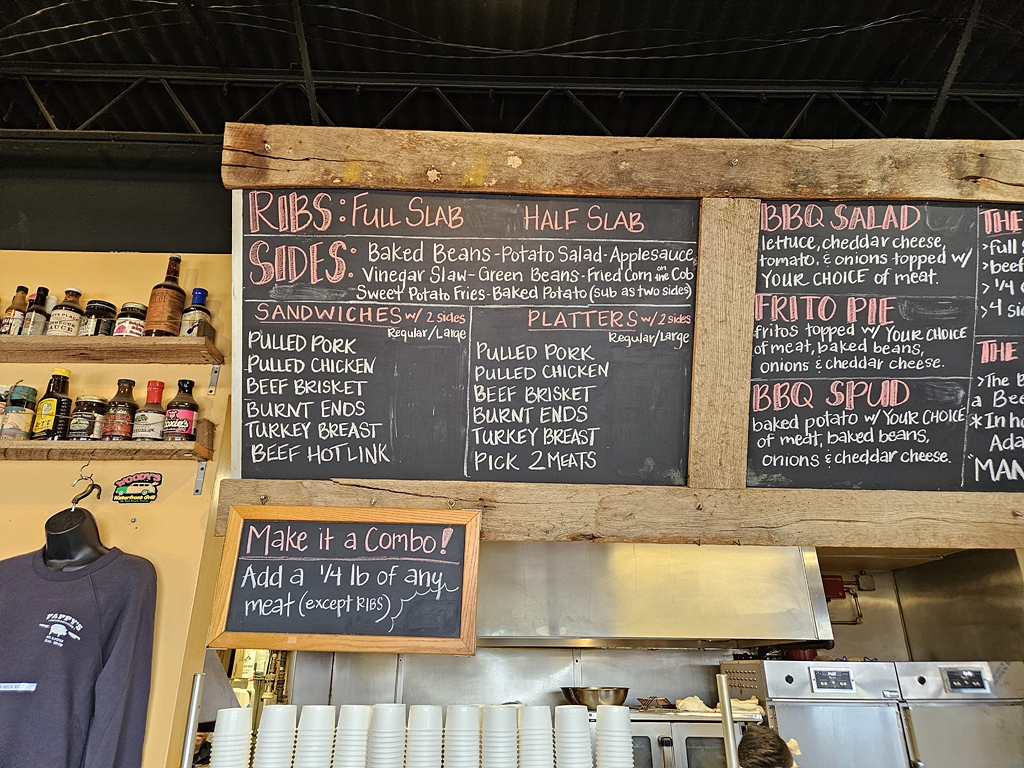 RIBS: FULL SLAB HALF SLAB
SIDES: Baked Beans-Potato Salad-Applesauce
Vinegar Slaw-Green Beans-Fried Corn on the Cob
Sweet Potato Fries-Baked Potato (sub as two sides)
SANDWICHES w/ 2 sides
Regular/Large
PULLED PORK
PULLED CHICKEN
BEEF BRISKET
BURNT ENDS
TURKEY BREAST
BEEF HOT LINK
PLATTERS w/ 2 sides
Regular/Large
PULLED PORK
PULLED CHICKEN
BEEF BRISKET
BURNT ENDS
TURKEY BREAST
PICK 2 MEATS
BBQ SALAD
lettuce, cheddar cheese,
tomato, & onions topped w/
YOUR CHOICE of meat.
FRITO PIE
fritos topped w/ YOUR CHOICE
of meat, baked beans,
onions & cheddar cheese.
BBQ SPUD
baked potato w/ YOUR CHOICE
of meat, baked beans,
onions & cheddar cheese.
THE
>full
>beef
>1/4
>4 sid
THE
>The B
a Bee
*In ho
Ada
"MAN
Make it a Combo!
Add a 1/4 lb of any
meat (except RIBS)
WOODY'S
Waterfront Grill
PAPPY'S